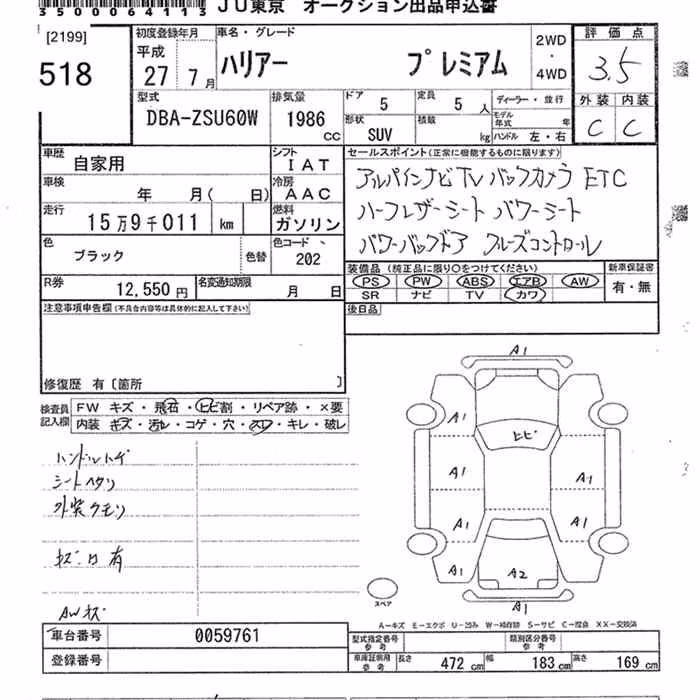 35006411​3 JU東京 オークション出品申込書
[2199]
518
初度登録年月
平成
27 7月
車名・グレード
ハリアー プレミアム
2WD
・
4WD
評価点
3.5
外装 内装
C C
型式
DBA-ZSU60W
排気量
1986
CC
ドア 5
定員 5 人
ディーラー・並行
形状 SUV
積載 kg
モデル年式 年
ハンドル 左・右
車歴
自家用
シフト
IAT
車検
年 月( 日)
冷房
AAC
走行
15万9千011 km
燃料
ガソリン
色
ブラック
色替
色コード
202
R券
12,550円
名変通知期限
月 日
セールスポイント(正常に機能するものに限ります)
アルパインナビ TV バックカメラ ETC
ハーフレザーシート パワーシート
パワーバックドア クルーズコントロール
装備品 (純正品に限り○をつけてください)
PS PW ABS エアB AW
SR ナビ TV カワ
新車保証書
有・無
後日品
注意事項申告欄(不具合内容等は具体的に記入して下さい)
修復歴 有〔箇所 〕
検査員記入欄
FW キズ・飛石・ヒビ割・リペア跡・×要
内装・キズ・汚レ・コゲ・穴・スレ・キレ・破レ
ハンドルハゲ
シートヘタリ
外装クモリ
キズ・凹有
AWキズ
A1
A1
ヒビ
A1
A1
A1
A1
A1
A2
A1
スペア
A-キズ E-エクボ U-凹み W-補修跡 S-サビ C-腐食 XX-交換済
車台番号 0059761
登録番号
型式指定番号参考
類別区分番号参考
車庫証明用参考
長さ 472cm 幅 183cm 高さ 169cm